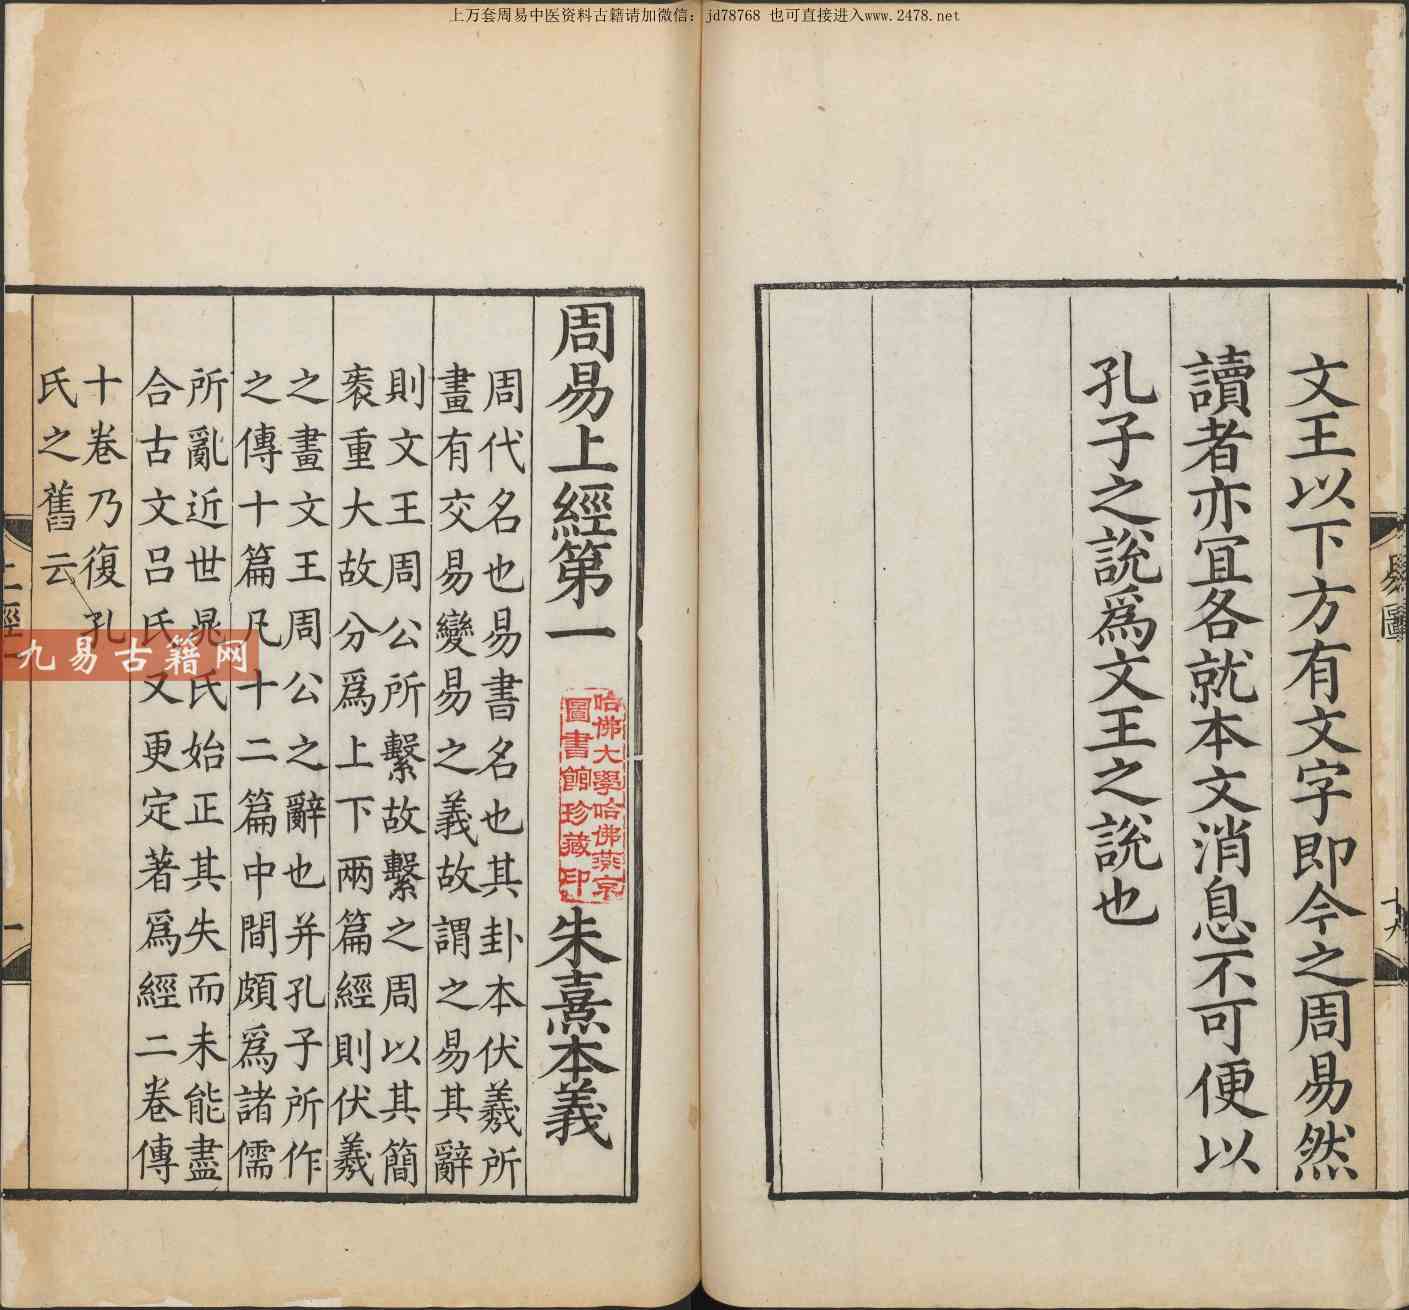 上万套周易中医资料古籍请加微信：jd78768 也可直接进入www.2478.net
易圖
十九
文王以下方有文字即今之周易然
讀者亦宜各就本文消息不可便以
孔子之說爲文王之說也
周易上經第一
朱熹本義
哈佛大學哈佛燕京
圖書館珍藏印
周代名也易書名也其卦本伏羲所
畫有交易變易之義故謂之易其辭
則文王周公所繫故繫之周以其簡
袠重大故分爲上下兩篇經則伏羲
之畫文王周公之辭也并孔子所作
之傳十篇凡十二篇中間頗爲諸儒
所亂近世晁氏始正其失而未能盡
合古文呂氏又更定著爲經二卷傳
十卷乃復孔
氏之舊云
九易古籍网
上經
一